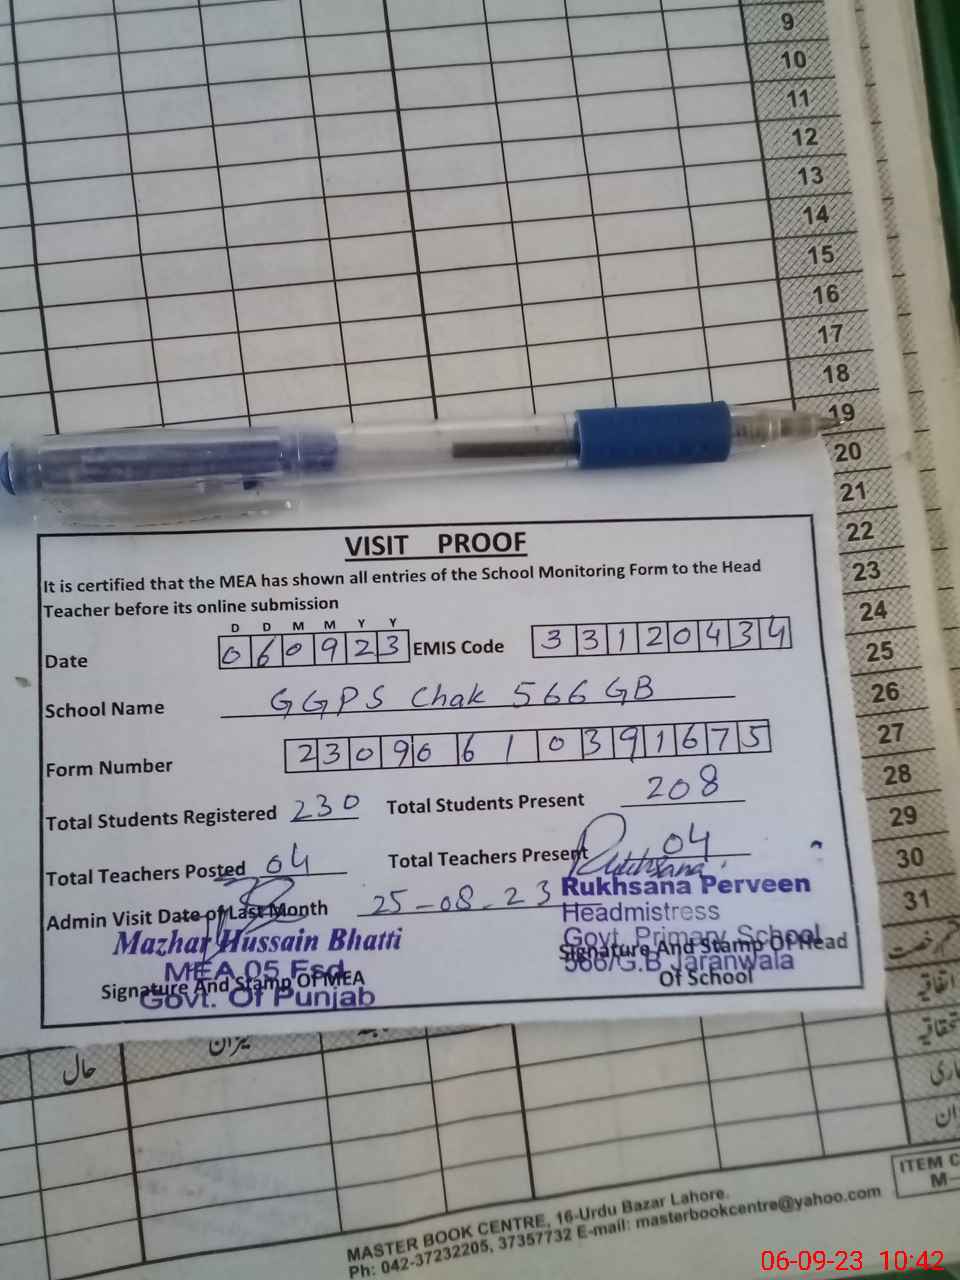 9
10
11
12
13
14
15
16
17
18
19
20
21
22
23
24
25
26
27
28
29
30
31
VISIT PROOF
It is certified that the MEA has shown all entries of the School Monitoring Form to the Head
Teacher before its online submission
D D M M Y Y
Date 060923 EMIS Code 33120434
School Name GGPS Chak 566 GB
Form Number 230906610391675
Total Students Registered 230 Total Students Present 208
Total Teachers Posted 04 Total Teachers Present 04
Rukhsana
Admin Visit Date of Last Month 25-08-23
Rukhsana Perveen
Headmistress
Govt. Primary School
566/G.B Jaranwala
Signature And Stamp Of Head
Of School
Mazhar Hussain Bhatti
MEA 05 Fsd
Govt. Of Punjab
Signature And Stamp Of MEA
حال
میزان
اتفاقیہ
MASTER BOOK CENTRE, 16-Urdu Bazar Lahore.
Ph: 042-37232205, 37357732 E-mail: masterbookcentre@yahoo.com
ITEM C
M-
06-09-23 10:42